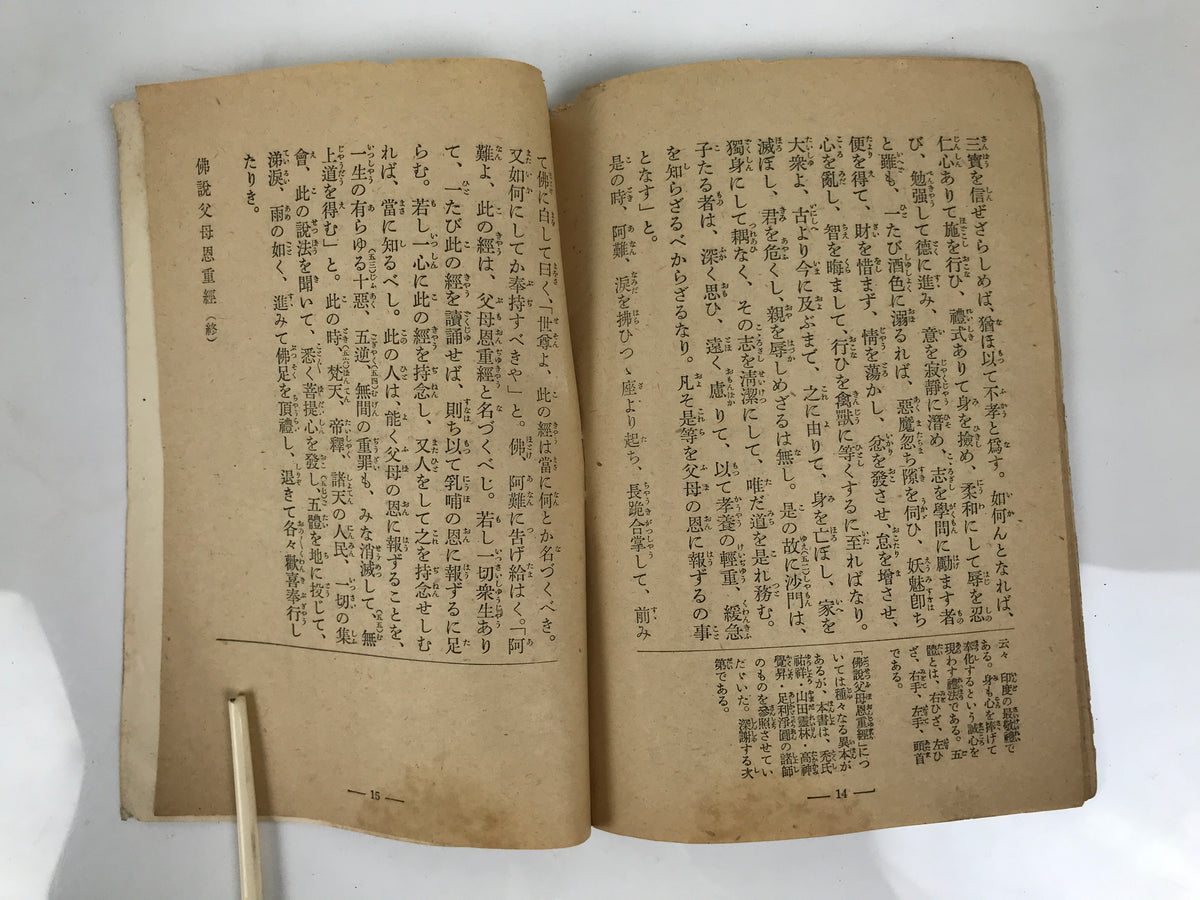 三寳を信ぜざらしめば、猶ほ以て不孝と爲す。如何んとなれば、
仁心ありて施を行ひ、禮式ありて身を撿め、柔和にして辱を忍
び、勉强して德に進み、意を寂靜に潛め、志を學問に勵ます者
と雖も、一たび酒色に溺るれば、惡魔忽ち隙を伺ひ、妖魅卽ち
便を得て、財を惜まず、情を蕩かし、忿を發させ、怠を增させ、
心を亂し、智を晦まして、行ひを禽獸に等くするに至ればなり。
大衆よ、古より今に及ぶまで、之に由りて、身を亡ぼし、家を
滅ぼし、君を危くし、親を辱しめざるは無し。是の故に沙門は、
獨身にして耦なく、その志を淸潔にして、唯だ道を是れ務む。
子たる者は、深く思ひ、遠く慮りて、以て孝養の輕重、緩急
を知らざるべからざるなり。凡そ是等を父母の恩に報ずるの事
となす」と。
是の時、阿難、淚を拂ひつゝ座より起ち、長跪合掌して、前み
云々 印度の最敬禮で
ある。身も心を捧げて
奉化するという誠心を
現わす禮法である。五
體とは、右ひざ、左ひ
ざ、右手、左手、頭首
である。
「佛說父母恩重經」につ
いては種々なる異本が
あるが、本書は、禿氏
祐祥・山田靈林・高神
覺昇・足利淨圓の諸師
のものを參照させてい
たゞいた。深謝する次
第である。
— 14 —
て佛に白して曰く、「世尊よ、此の經は當に何とか名づくべき。
又如何にしてか奉持すべきや」と。佛、阿難に告げ給はく。「阿
難よ、此の經は、父母恩重經と名づくべし。若し一切衆生あり
て、一たび此の經を讀誦せば、則ち以て乳哺の恩に報ずるに足
らむ。若し一心に此の經を持念し、又人をして之を持念せしむ
れば、當に知るべし。此の人は、能く父母の恩に報ずることを、
一生の有らゆる十惡、五逆、無間の重罪も、みな消滅して、無
上道を得む」と。此の時、梵天、帝釋、諸天の人民、一切の集
會、此の說法を聞いて、悉く菩提心を發し、五體を地に投じて、
涕淚、雨の如く、進みて佛足を頂禮し、退きて各々歡喜奉行し
たりき。
佛說父母恩重經（終）
— 15 —